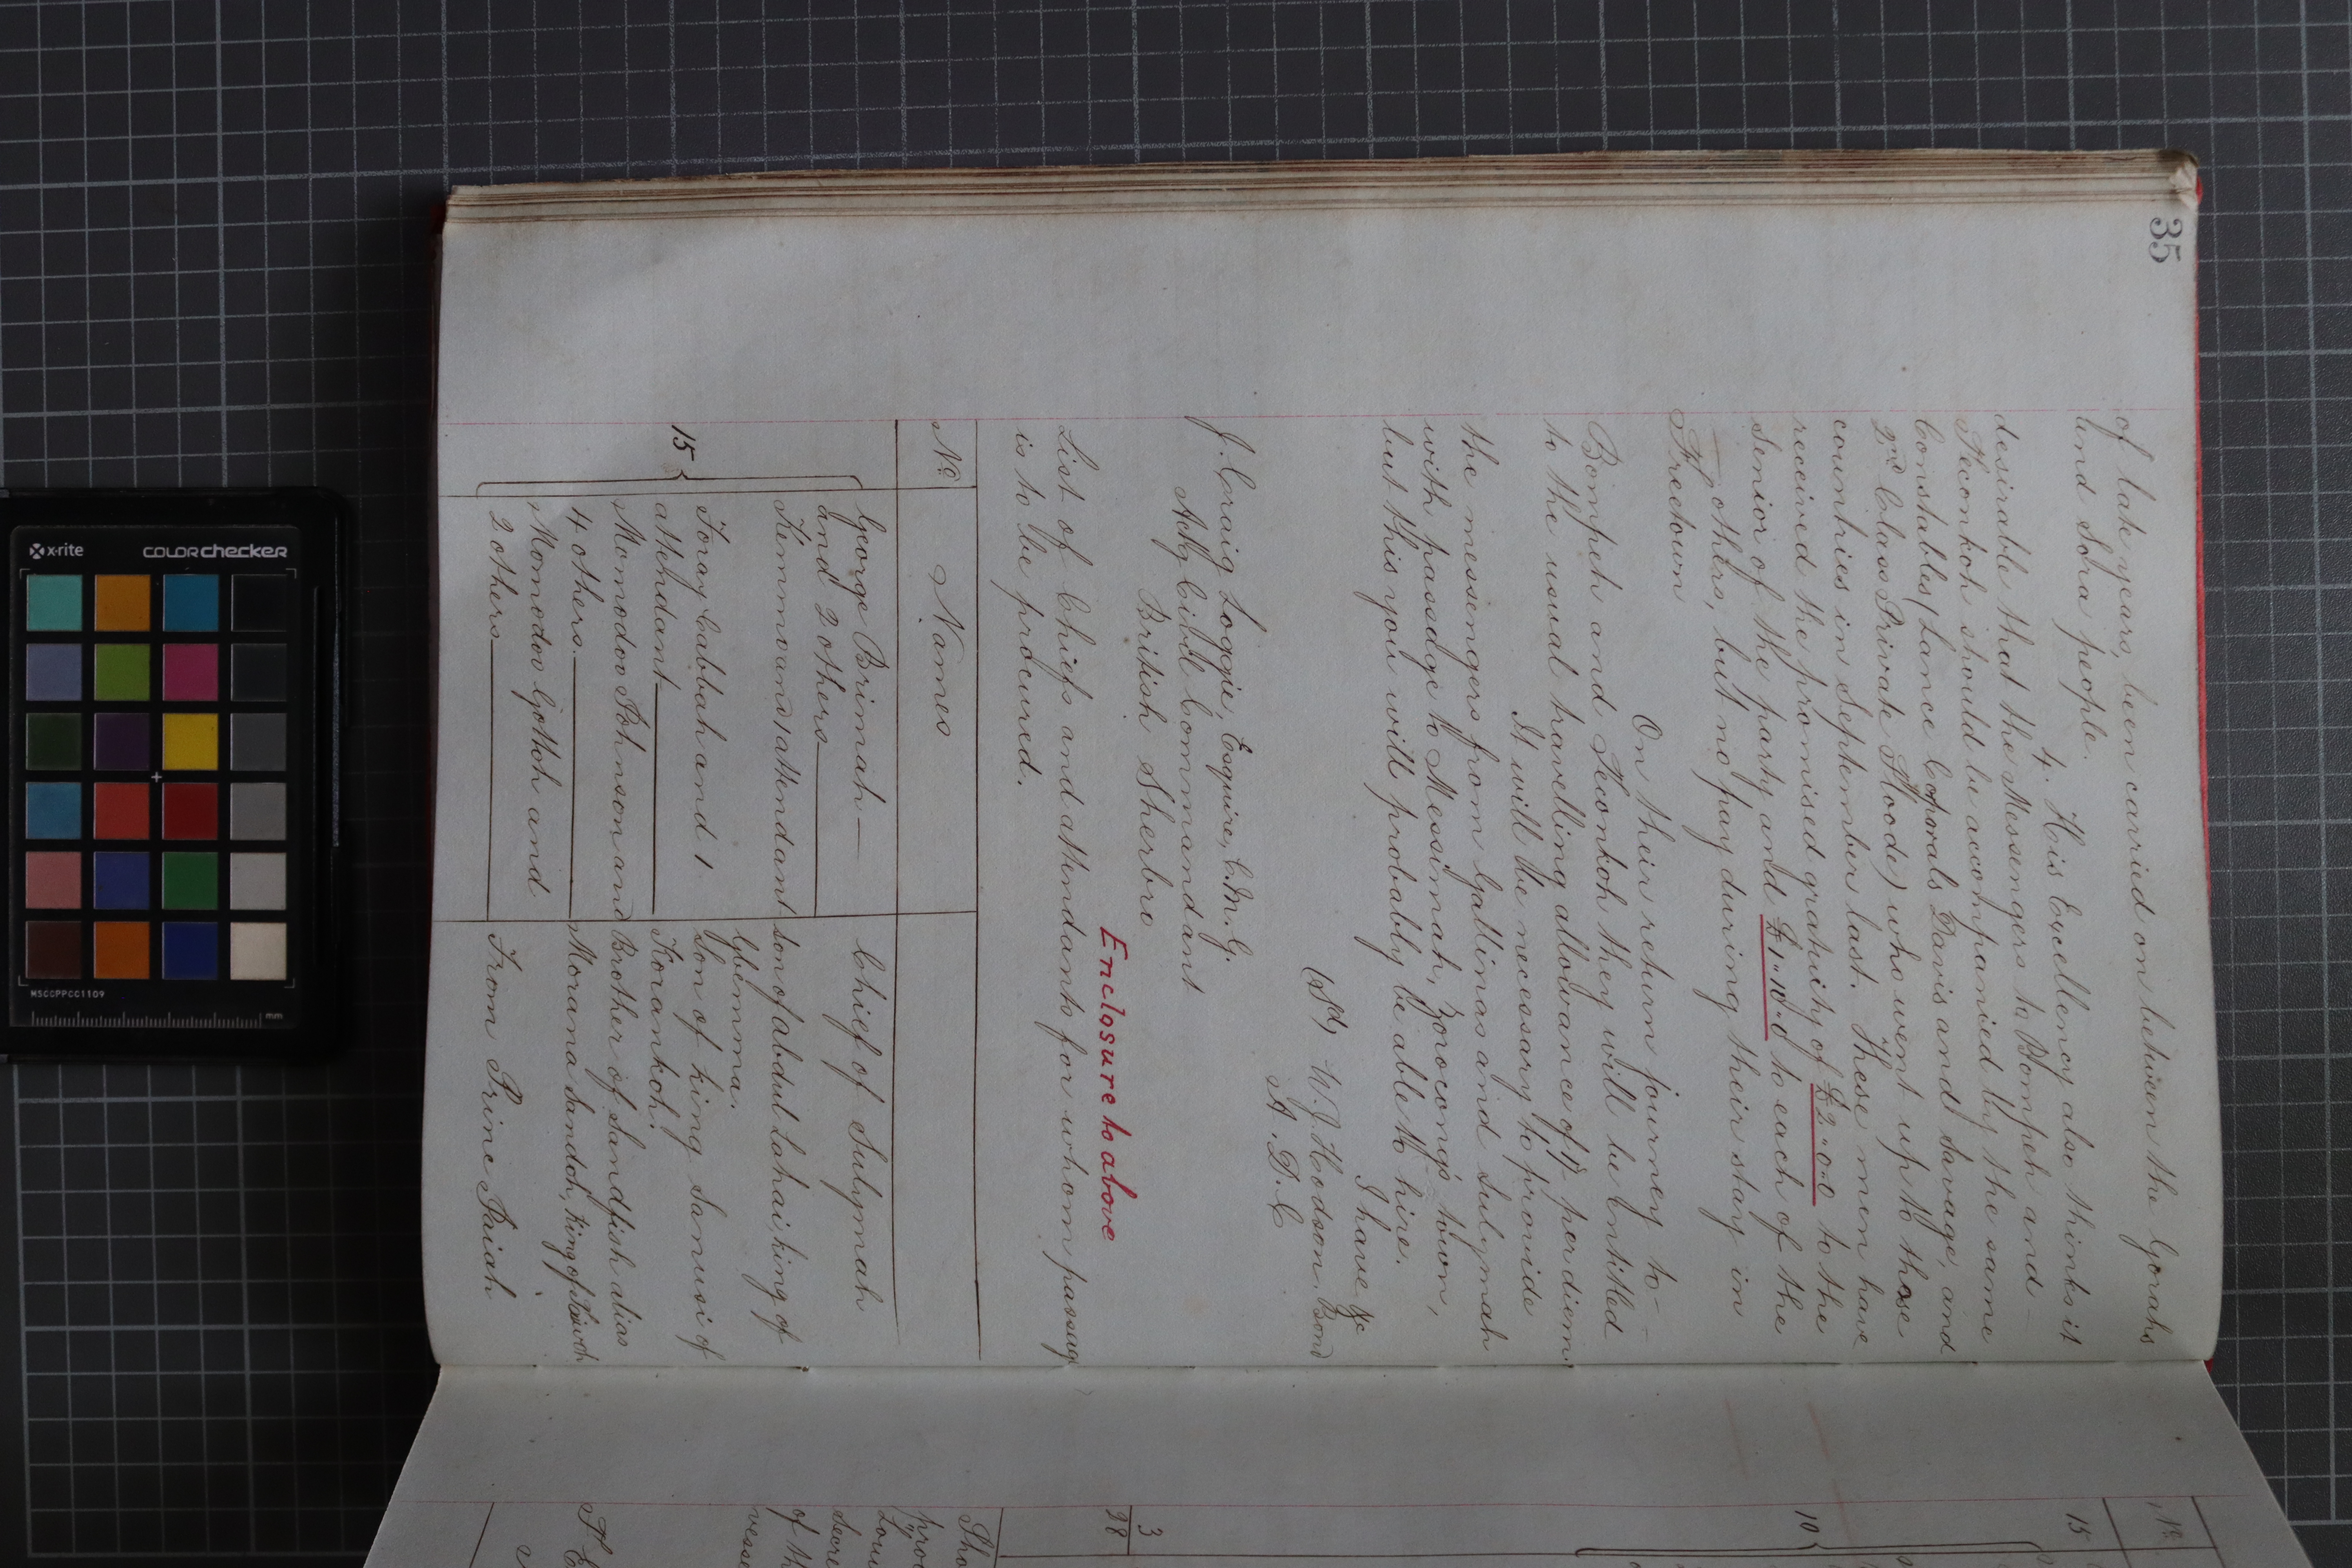 35
of late years, been carried on between the Gorahs
and Sora people.
4. His Excellency also thinks it
desirable that the Messengers to Bompeh and
Teconkoh should be accompanied by the same
Constables (Lance Corporals Davis and Savage, and
2nd Class Private Hoode) who went up to those
countries in September last. These men have
received the promised gratuity of £2"0"0 to the
Senior of the party and £1"10"0 to each of the
others, but no pay during their stay in
Freetown
On their return journey to
Bompeh and Teconkoh they will be entitled
to the usual travelling allowance of 1/- per diem
It will be necessary to provide
the messengers from Gallinas and Sulymah
with passage to Messimah, Bonocong's town,
but this you will probably be able to hire.
I have &c
(Sd) W. J. Hodson. Bond
A. D. C
J. Craig Loggie, Esquire, C.M.G.
Actg Civil Commandant
British Sherbro
Enclosure to above
List of Chiefs and attendants for whom passage
is to be procured.
No Names
George Brimah — Chief of Sulymah
and 2 others
Kemmo and 1 attendant son of abdul Lahai, king of
Gbemma.
Foray Gabbah and 1 Son of King Sanusi of
attendant Korankoh.
15 Momodoo Johnson and Brother of Sandfish alias
4 others. Morana Sandoh, King of
Momodoo Gottoh and
2 others From Prince Jaiah
No
15
10
3
28
of th